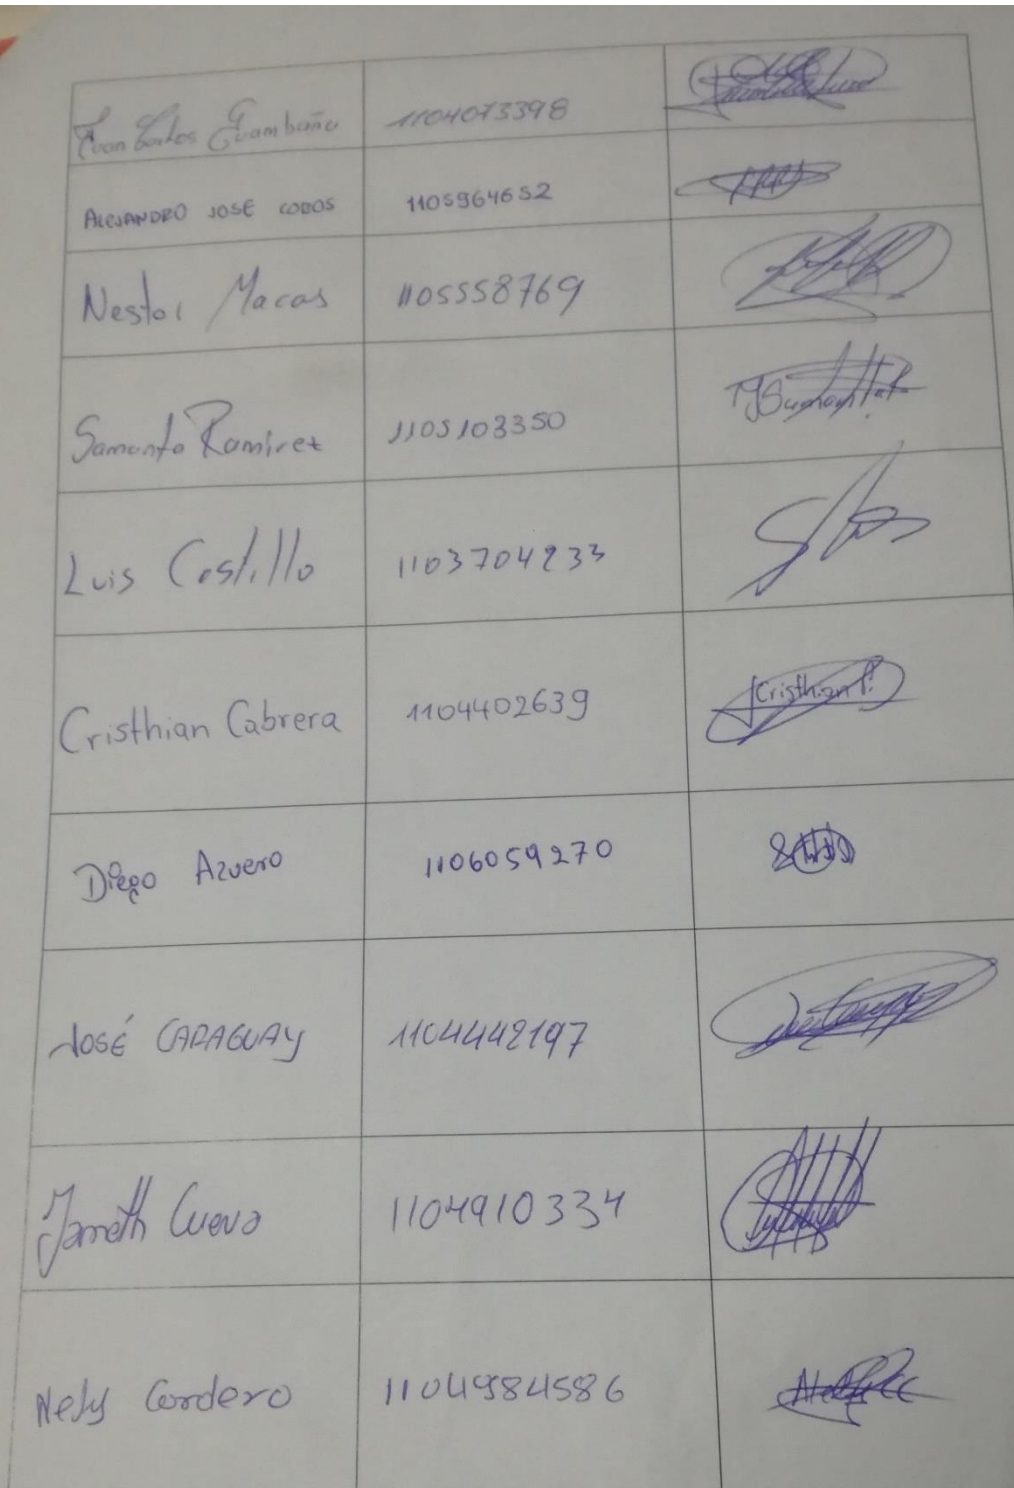 Juan Carlos Guambaña 1104073398
ALEJANDRO JOSE COBOS 1105964652
Nestor Macas 1105558769
Samanta Ramirez 1105103350
Luis Castillo 1103704233
Cristhian Cabrera 1104402639 Cristhian P.
Diego Azuero 1106059270
JOSÉ CARAGUAY 1104442197
Janneth Cueva 1104910334
Nely Cordero 1104984586